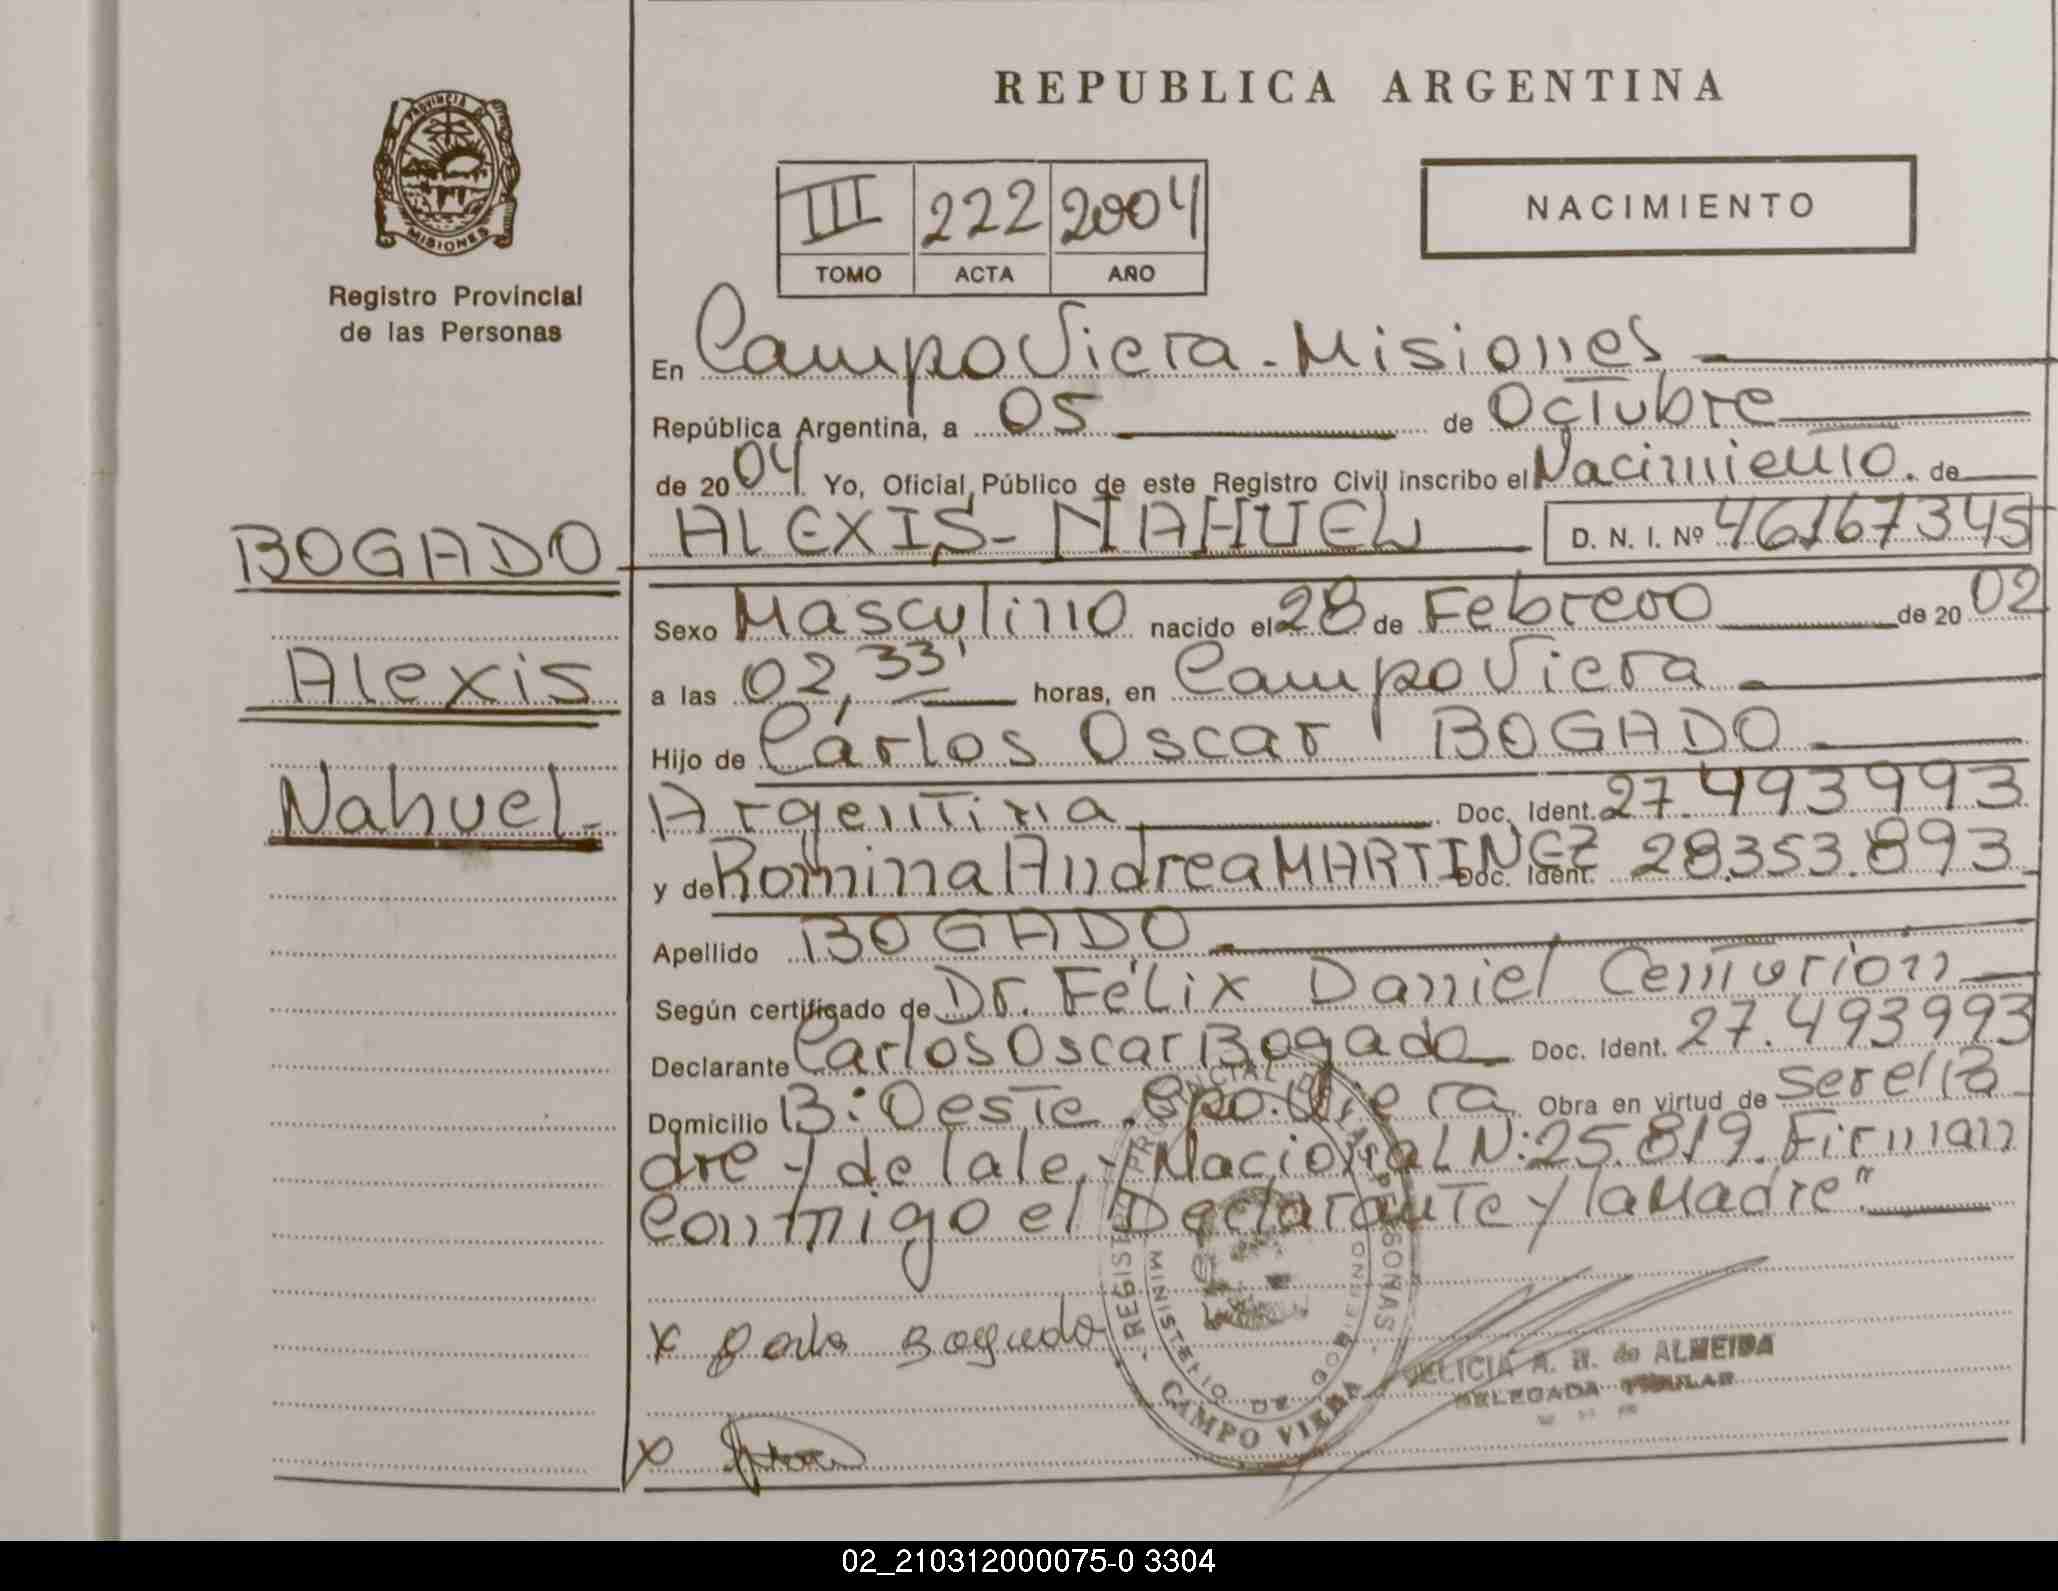 REPUBLICA ARGENTINA
PROVINCIA DE
MISIONES
Registro Provincial
de las Personas
III 222 2004
TOMO ACTA AÑO
NACIMIENTO
En Campo Viera - Misiones
República Argentina, a 05 de Octubre
de 2004 Yo, Oficial Público de este Registro Civil inscribo el Nacimiento. de
BOGADO
ALEXIS - NAHUEL D. N. I. Nº 46167345
Sexo Masculino nacido el 28 de Febrero de 2002
Alexis
a las 02,33' horas, en Campo Viera
Hijo de Carlos Oscar BOGADO
Nahuel-
Argentina Doc. Ident. 27.493993
y de Romina Andrea MARTINEZ Doc. Ident. 28.353.893
Apellido BOGADO
Según certificado de Dr. Félix Daniel Centurión
Declarante Carlos Oscar Bogado Doc. Ident. 27.493993
Domicilio B: Oeste. Cpo. Viera Obra en virtud de ser el Pa
dre y de la ley Nacional N: 25.819. Firman
Conmigo el Declarante y la Madre"
x Bogado
x
REGISTRO PROVINCIAL DE LAS PERSONAS
MINISTERIO DE GOBIERNO
CAMPO VIERA
FELICIA A. H. de ALMEIDA
DELEGADA TITULAR
02_210312000075-0 3304